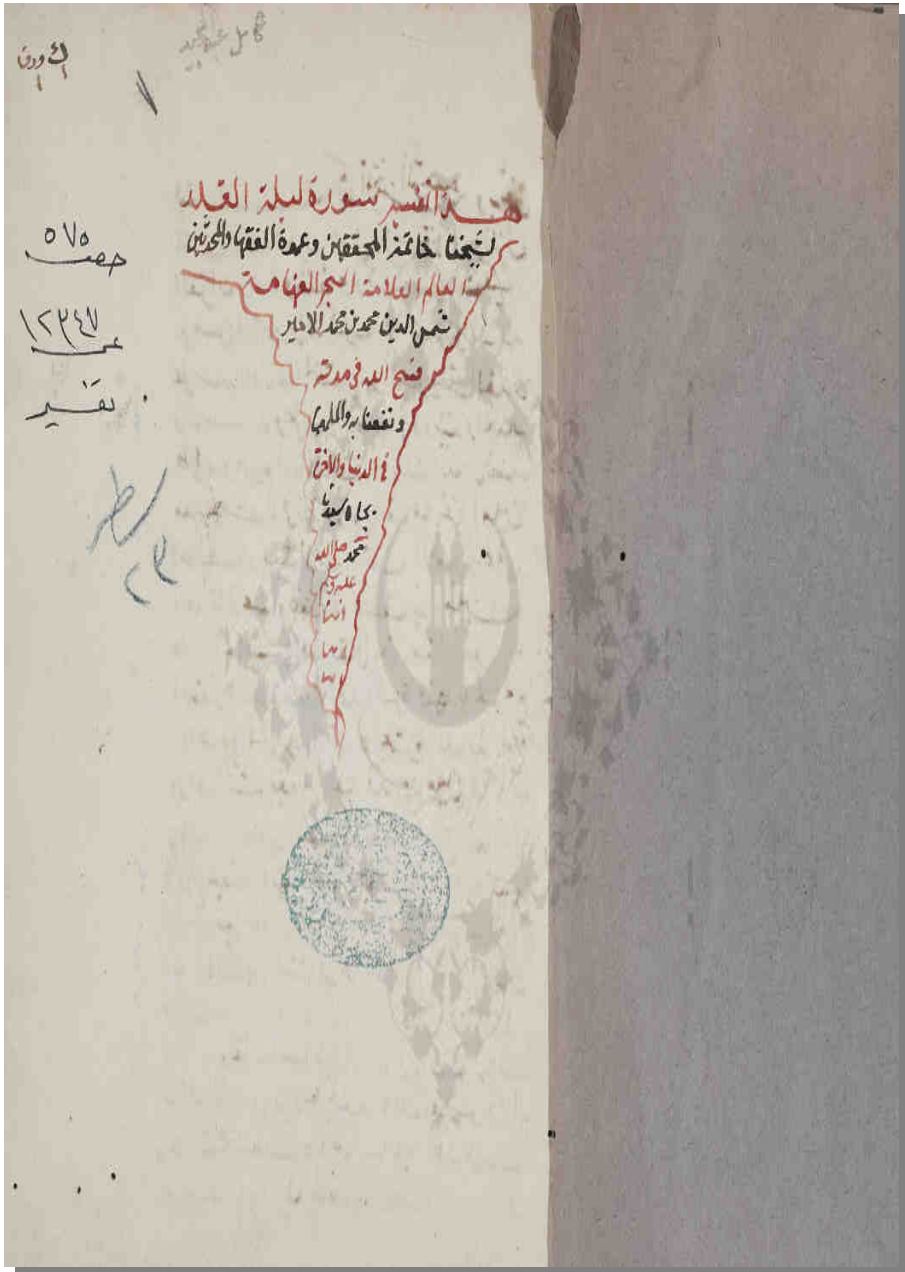 هذا تفسير سورة ليلة القدر
لشيخنا خاتمة المحققين وعمدة الفقها والمحدثين
العالم العلامة البحر الفهامة
شمس الدين محمد بن محمد الامير
فسح الله في مدته
ونفعنا به والمسلمين
في الدنيا والاخرة
بجاه سيدنا
محمد صلى الله
عليه وسلم
امين
٥٧٥
خصف
١٢٣٤٧
عـ
تفسير
سطر
٢٣